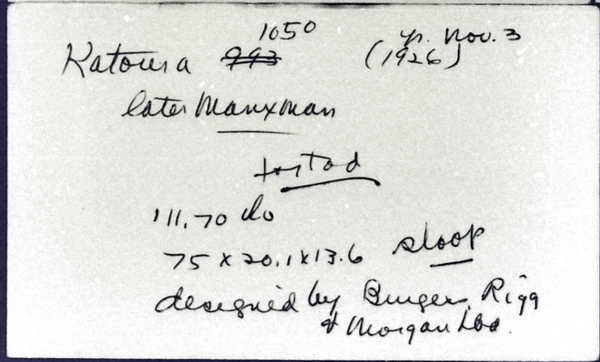 1050
Katoura 993 (1926) yr. Nov. 3
later Manxman
111.70 do
75 x 20.1 x 13.6 sloop
designed by Burgess, Rigg
& Morgan Ltd.